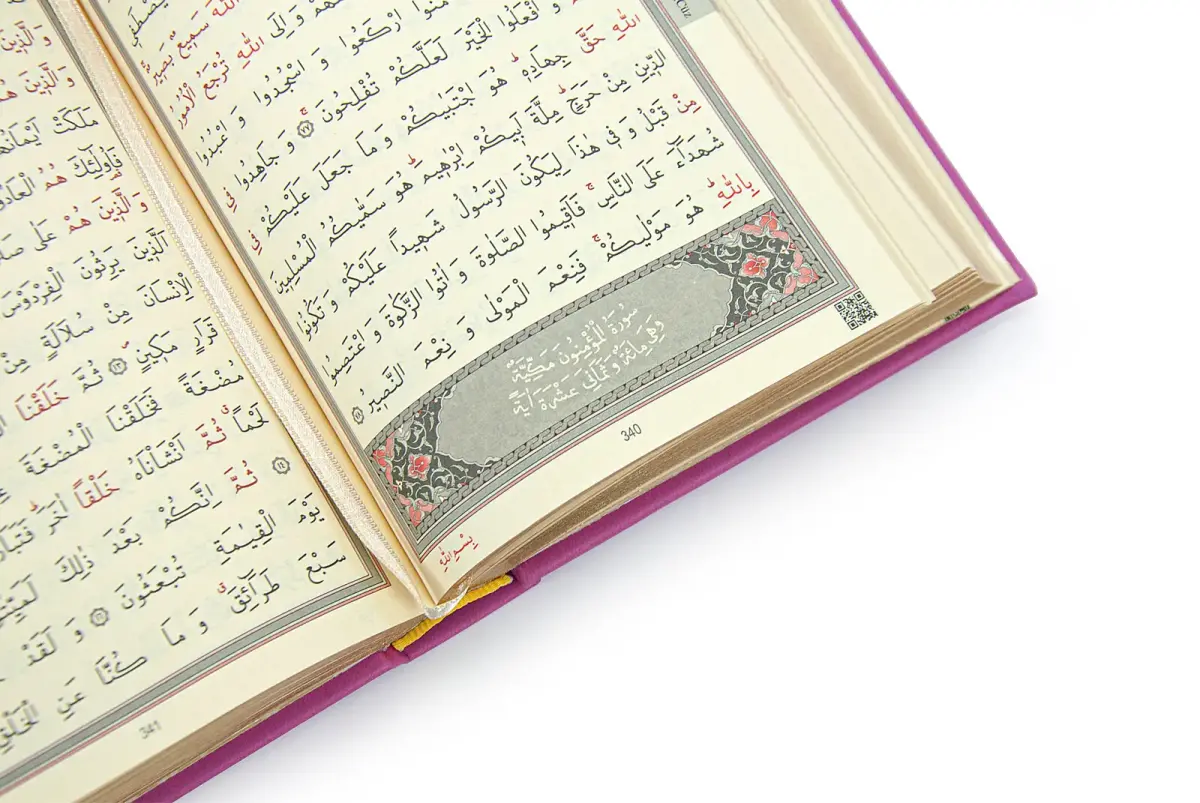 اللّٰهَ سَمٖيعٌ بَصٖيرٌ
وَ اِلَى اللّٰهِ تُرْجَعُ الْاُمُورُ
ارْكَعُوا وَ اسْجُدُوا وَ اعْبُدُوا
وَ افْعَلُوا الْخَيْرَ لَعَلَّكُمْ تُفْلِحُونَ ۚ ٧٧ وَ جَاهِدُوا فِى
اللّٰهِ حَقَّ جِهَادِهٖ ۜ هُوَ اجْتَبٰيكُمْ وَ مَا جَعَلَ عَلَيْكُمْ فِى
الدّٖينِ مِنْ حَرَجٍ ۜ مِلَّةَ اَبٖيكُمْ اِبْرٰهٖيمَ ۜ هُوَ سَمّٰيكُمُ الْمُسْلِمٖينَ
مِنْ قَبْلُ وَ فٖى هٰذَا لِيَكُونَ الرَّسُولُ شَهٖيدًا عَلَيْكُمْ وَ تَكُونُوا
شُهَدَٓاءَ عَلَى النَّاسِ ۚ فَاَقٖيمُوا الصَّلٰوةَ وَ اٰتُوا الزَّكٰوةَ وَ اعْتَصِمُوا
بِاللّٰهِ ۜ هُوَ مَوْلٰيكُمْ ۚ فَنِعْمَ الْمَوْلٰى وَ نِعْمَ النَّصٖيرُ ٧٨
سُورَةُ الْمُؤْمِنُونَ مَكِّيَّةٌ
وَهِىَ مِائَةٌ وَ ثَمَانِىَ عَشْرَةَ اٰيَةً
340
بِسْمِ اللّٰهِ
وَ الَّذٖينَ
وَ الَّذٖينَ هُمْ
مَلَكَتْ
فَاُولٰٓئِكَ هُمُ
وَ الَّذٖينَ هُمْ عَلٰى
اَلَّذٖينَ يَرِثُونَ الْفِرْدَوْسَ
الْاِنْسَانَ مِنْ سُلَالَةٍ مِنْ
قَرَارٍ مَكٖينٍ ١٣ ثُمَّ خَلَقْنَا
مُضْغَةً فَخَلَقْنَا الْمُضْغَةَ
لَحْمًا ثُمَّ اَنْشَاْنَاهُ خَلْقًا اٰخَرَ
١٤ ثُمَّ اِنَّكُمْ بَعْدَ ذٰلِكَ
يَوْمَ الْقِيٰمَةِ تُبْعَثُونَ ١٦ وَ لَقَدْ
سَبْعَ طَرَٓائِقَ وَ مَا كُنَّا عَنِ الْخَلْقِ
341